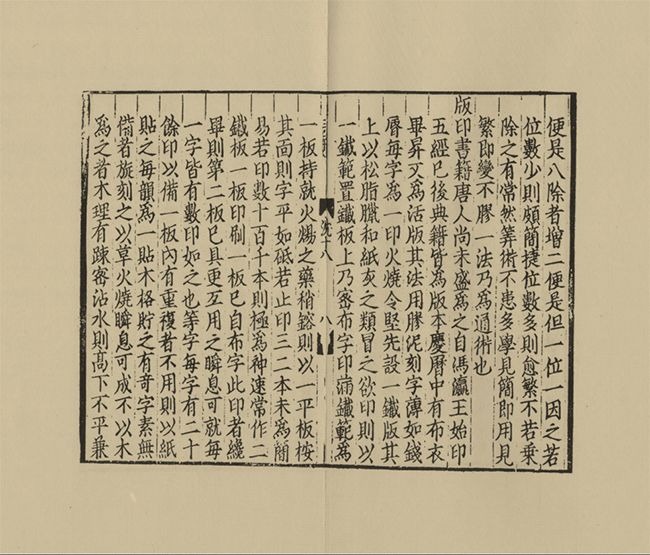 便是八除者增二便是但一位一因之若
位數少則頗簡捷位數多則愈繁不若乗
除之有常然筭術不患多學見簡即用見
繁即變不膠一法乃爲通術也
版印書籍唐人尚未盛爲之自馮瀛王始印
五經已後典籍皆爲版本慶曆中有布衣
畢昇又爲活版其法用膠泥刻字薄如錢
脣每字爲一印火燒令堅先設一鐵版其
上以松脂臘和紙灰之類冒之欲印則以
一鐵範置鐵板上乃宻布字印滿鐵範爲
八
一板持就火煬之藥稍鎔則以一平板按
其面則字平如砥若止印三二本未爲簡
易若印數十百千本則極爲神速常作二
鐵板一板印刷一板已自布字此印者纔
畢則第二板已具更互用之瞬息可就每
一字皆有數印如之也等字每字有二十
餘印以備一板內有重複者不用則以紙
貼之每韻爲一貼木格貯之有奇字素無
備者旋刻之以草火燒瞬息可成不以木
爲之者木理有踈密沾水則高下不平兼